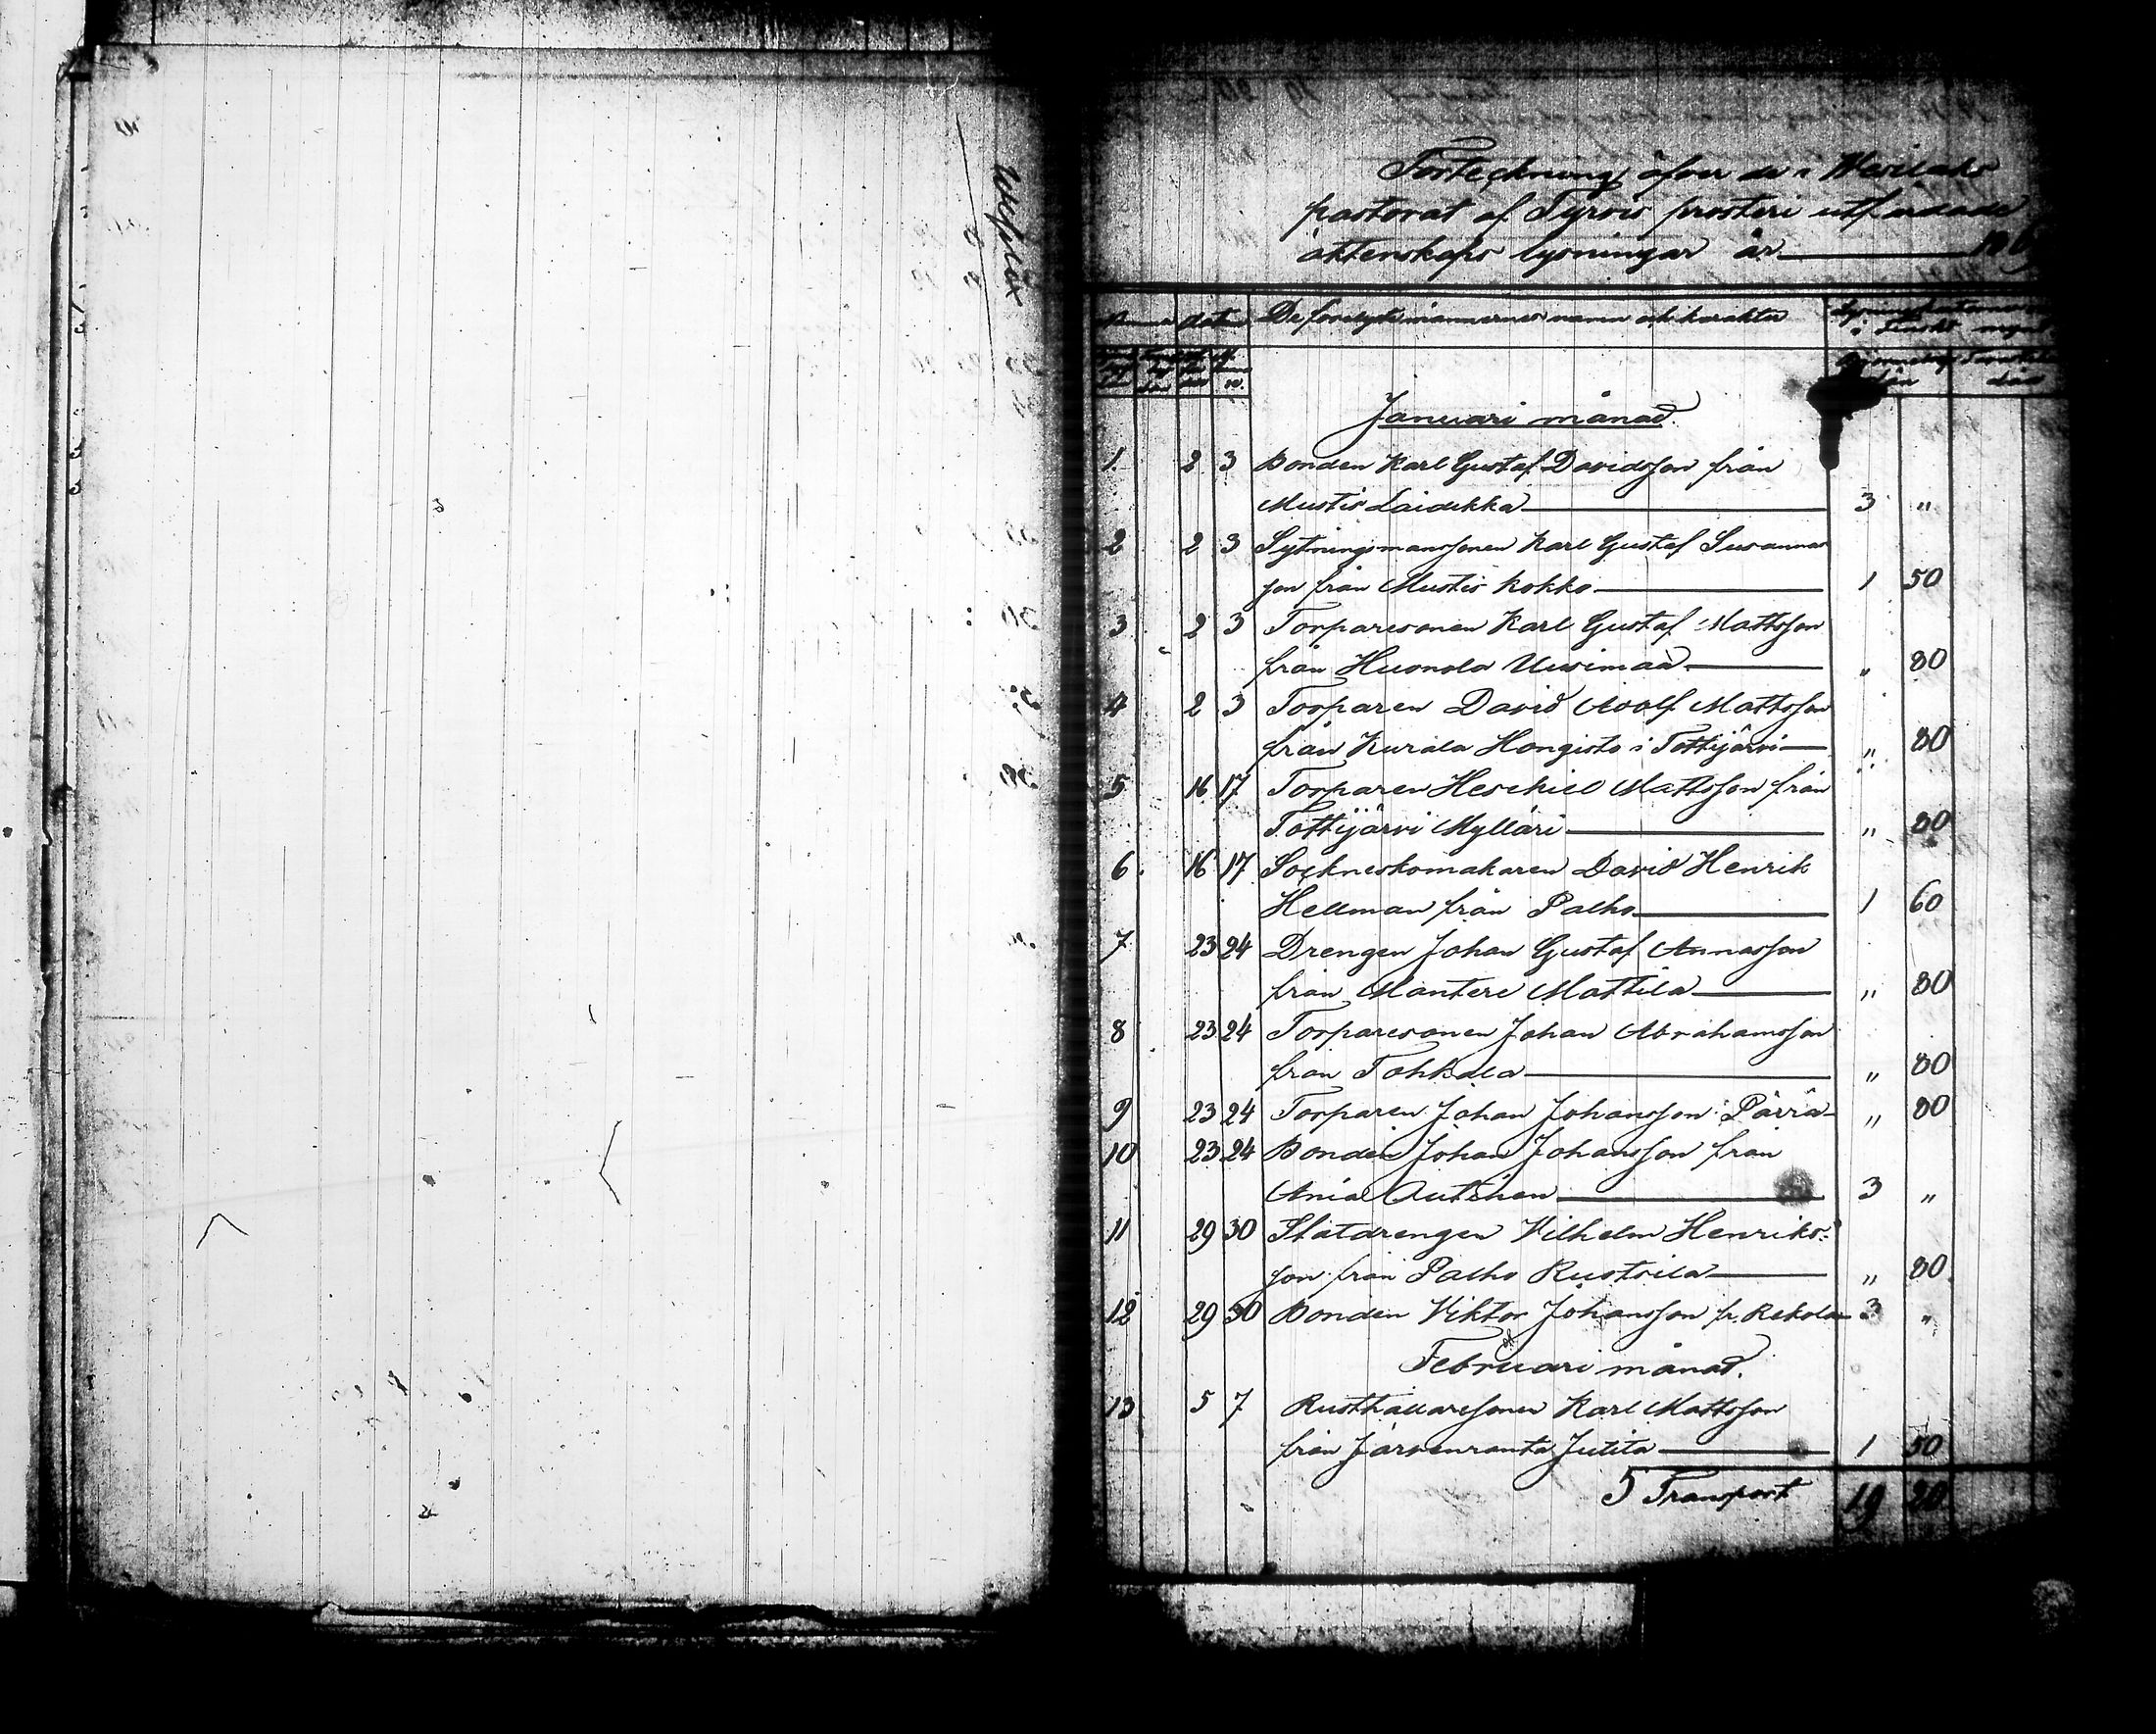 Förteckning öfver de i Wesilaks
pastorat af Tyrvis prosteri utfärdade
äktenskaps lysningar år
De förelystemännernes namn och karakter
Januari månad.
1. 2 3 Bonden Karl Gustaf Davidsson från
Mustis Laidikka 3 "
2 2 3 Sytningsmanssonen Karl Gustaf Susannas
son från Mustis Kokko 1 50
3 2 3 Torparesonen Karl Gustaf Mattsson
från Huonola Uusimaa " 80
4 2 3 Torparen David Adolf Mattsson
från Kurala Hongisto i Tottijärvi " 80
5 16 17 Torparen Heschiel Mattsson från
Tottijärvi Mylläri " 80
6. 16 17 Sockneskomakaren David Henrik
Hellman från Palho 1 60
7 23 24 Drengen Johan Gustaf Annasson
från Mantere Mattila " 80
8 23 24 Torparesonen Johan Abrahamsson
från Tohkala " 80
9 23 24 Torparen Johan Johansson Pärrä " 80
10 23 24 Bonden Johan Johansson från
Ania 3 "
11 29 30 Statdrengen Vilhelm Henriks-
son från Palho Rustoila " 80
12 29 30 Bonden Viktor Johansson fr. Rekola 3 "
Februari månad.
13 5 7 Rusthållaresonen Karl Mattsson
från Järvenranta Jutila 1 50
Transport 19 20